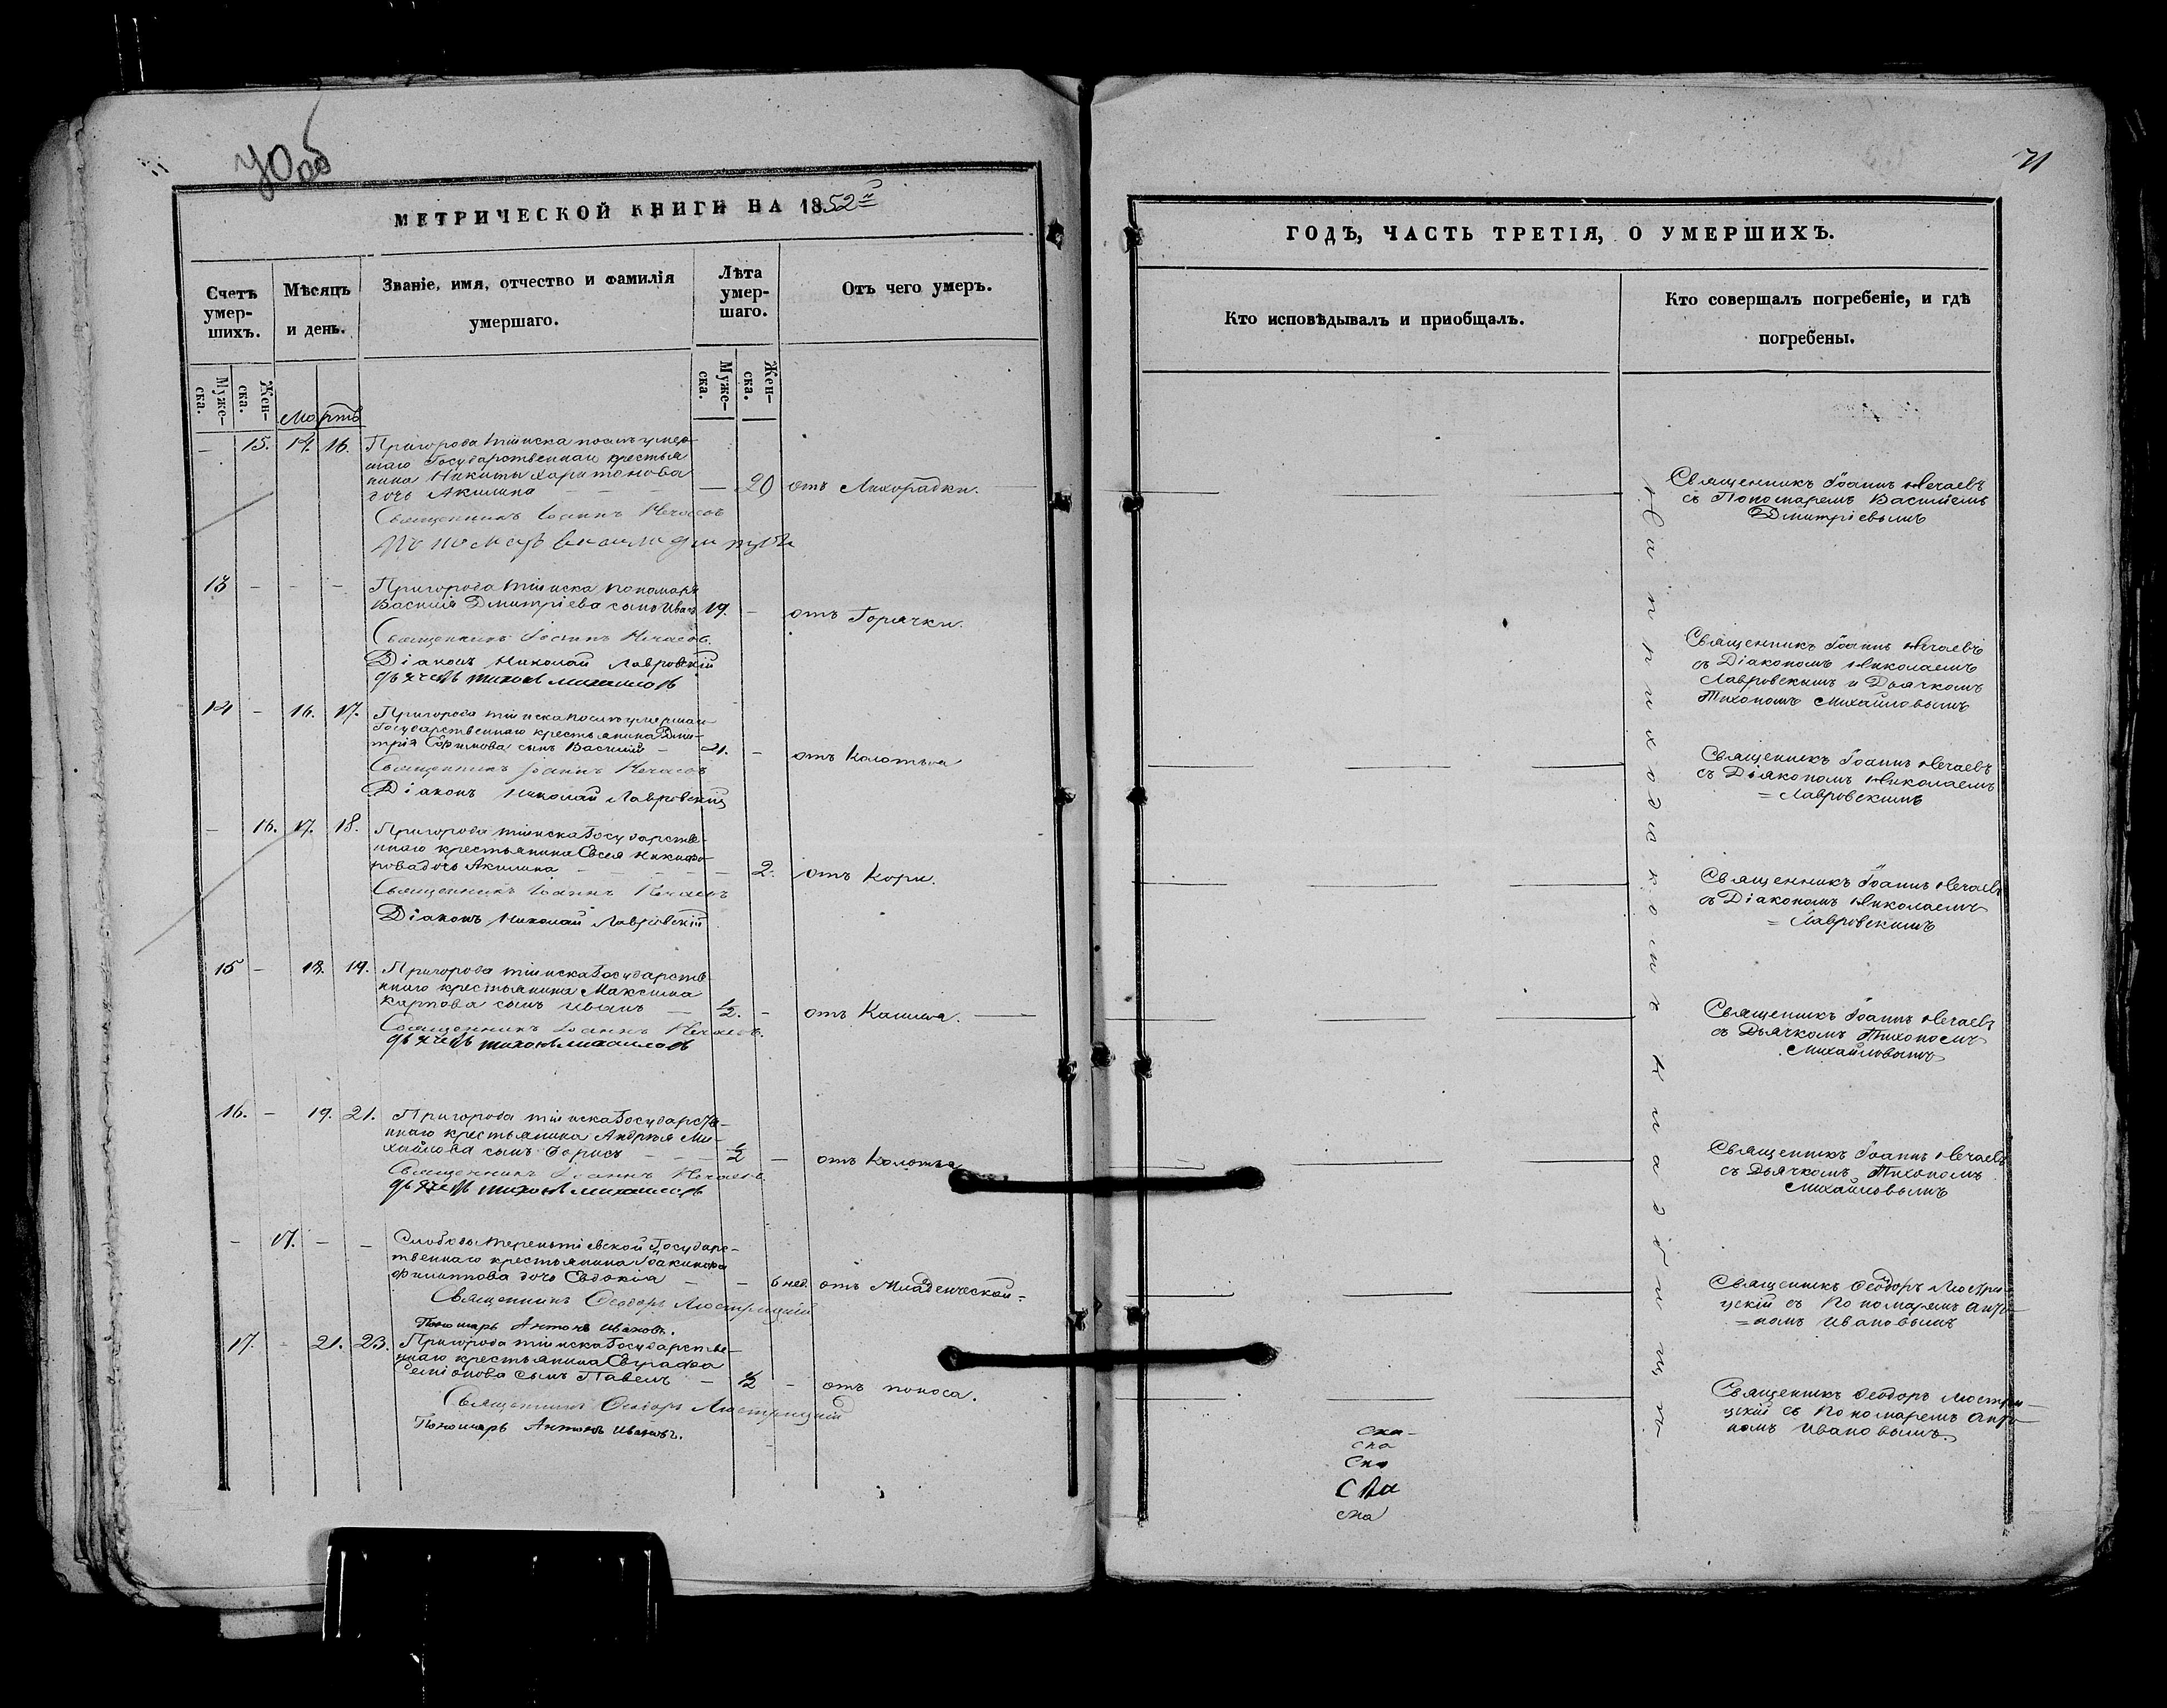 70об
МЕТРИЧЕСКОЙ КНИГИ НА 1852й
Счетъ умер-шихъ.
Мѣсяцъ и день.
Званіе, имя, отчество и фамилія умершаго.
Лѣта умер-шаго.
Отъ чего умеръ.
Муже-ска.
Жен-ска.
Мартъ
Муже-ска.
Жен-ска.
— 15. 14. 16. Пригорода Тіинска послѣ умер-
шаго Государственнаго крестья
нина Никиты Харитонова
дочь Акилина — 20 отъ Лихорадки.
Священникъ Іоаннъ Нечаевъ
13 - - - Пригорода Тіинска пономаря
Василія Дмитріева сынъ Иванъ 19. - отъ Горячки.
Священникъ Іоаннъ Нечаевъ.
Діаконъ Николай Лавровскій
Дьячекъ Тихонъ Михайловъ
14 - 16. 17. Пригорода Тіинска послѣ умершаго
Государственнаго крестьянина Дми-
трія Ефимова сынъ Василій - 21. - отъ Колотья
Священникъ Іоаннъ Нечаевъ
Діаконъ Николай Лавровскій
— 16. 17. 18. Пригорода Тіинска Государстве-
ннаго крестьянина Евсея Никифо-
рова дочь Акилина — 2. отъ Кори.
Священникъ Іоаннъ Нечаевъ
Діаконъ Николай Лавровскій
15 - 18. 19. Пригорода Тіинска Государстве-
ннаго крестьянина Максима
Карпова сынъ Иванъ — 1/2. - отъ Кашля.
Священникъ Іоаннъ Нечаевъ.
Дьячекъ Тихонъ Михайловъ
16. - 19. 21. Пригорода Тіинска Государстве-
ннаго крестьянина Андрея Ми-
хайлова сынъ Борисъ — 1/2 — отъ Колотья
Священникъ Іоаннъ Нечаевъ
Дьячекъ Тихонъ Михайловъ
- 17. - - Слободы Терентіевской Государс-
твеннаго крестьянина Іоакинфа
Филиппова дочь Евдокія — - 6 нед. отъ Младенческой
Священникъ Феодоръ Люстрицкій
Пономарь Антонъ Ивановъ.
17. - 21. 23. Пригорода Тіинска Государстве-
ннаго крестьянина Евграфа
Семіонова сынъ Павелъ — 1/2 - отъ поноса.
Священникъ Феодоръ Люстрицкій
Пономарь Антонъ Ивановъ.
71
ГОДЪ, ЧАСТЬ ТРЕТІЯ, О УМЕРШИХЪ.
Кто исповѣдывалъ и приобщалъ.
Кто совершалъ погребеніе, и гдѣ погребены.
На приходскомъ кладбищѣ
Священникъ Іоаннъ Нечаевъ
съ Пономаремъ Василіемъ
Дмитріевымъ
Священникъ Іоаннъ Нечаевъ
съ Діакономъ Николаемъ
Лавровскимъ и Дьячкомъ
Тихономъ Михайловымъ
Священникъ Іоаннъ Нечаевъ
съ Діакономъ Николаемъ
=Лавровскимъ
Священникъ Іоаннъ Нечаевъ
съ Діакономъ Николаемъ
=Лавровскимъ
Священникъ Іоаннъ Нечаевъ
съ Дьячкомъ Тихономъ
Михайловымъ
Священникъ Іоаннъ Нечаевъ
съ Дьячкомъ Тихономъ
Михайловымъ
Священникъ Феодоръ Люстри-
цкій съ Пономаремъ Анто-
=номъ Ивановымъ
Священникъ Феодоръ Люстри-
цкій съ Пономаремъ Анто-
номъ Ивановымъ.